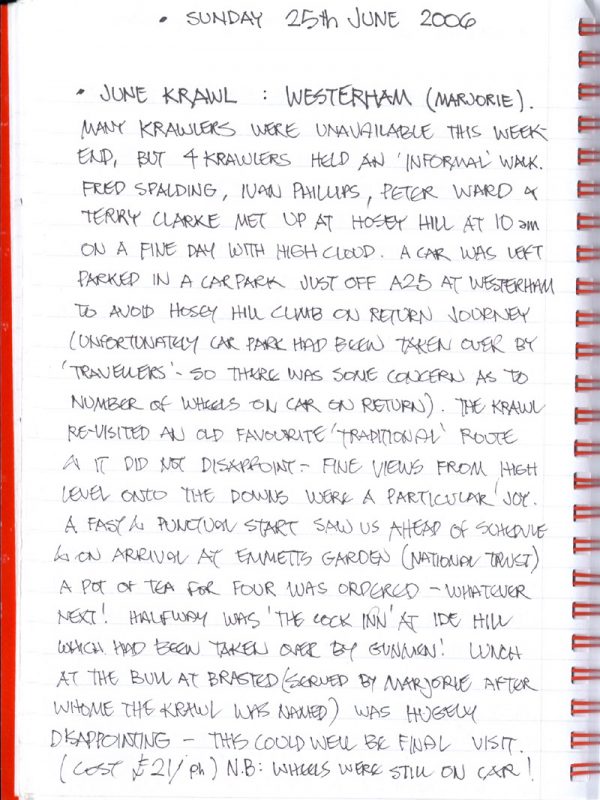 • SUNDAY 25th JUNE 2006
• JUNE KRAWL : WESTERHAM (MARJORIE).
MANY KRAWLERS WERE UNAVAILABLE THIS WEEK-
END, BUT 4 KRAWLERS HELD AN 'INFORMAL' WALK.
FRED SPALDING, IVAN PHILLIPS, PETER WARD &
TERRY CLARKE MET UP AT HOSEY HILL AT 10 am
ON A FINE DAY WITH HIGH CLOUD. A CAR WAS LEFT
PARKED IN A CARPARK JUST OFF A25 AT WESTERHAM
TO AVOID HOSEY HILL CLIMB ON RETURN JOURNEY
(UNFORTUNATELY CAR PARK HAD BEEN TAKEN OVER BY
'TRAVELLERS' - SO THERE WAS SOME CONCERN AS TO
NUMBER OF WHEELS ON CAR ON RETURN). THE KRAWL
RE-VISITED AN OLD FAVOURITE 'TRADITIONAL' ROUTE
& IT DID NOT DISAPPOINT - FINE VIEWS FROM HIGH
LEVEL ONTO THE DOWNS WERE A PARTICULAR JOY.
A FAST & PUNCTUAL START SAW US AHEAD OF SCHEDULE
& ON ARRIVAL AT EMMETTS GARDEN (NATIONAL TRUST)
A POT OF TEA FOR FOUR WAS ORDERED - WHATEVER
NEXT! HALFWAY WAS 'THE COCK INN' AT IDE HILL
WHICH HAD BEEN TAKEN OVER BY GUNMEN! LUNCH
AT THE BULL AT BRASTED (SERVED BY MARJORIE AFTER
WHOME THE KRAWL WAS NAMED) WAS HUGELY
DISAPPOINTING - THIS COULD WELL BE FINAL VISIT.
(COST £21/ph) N.B: WHEELS WERE STILL ON CAR!